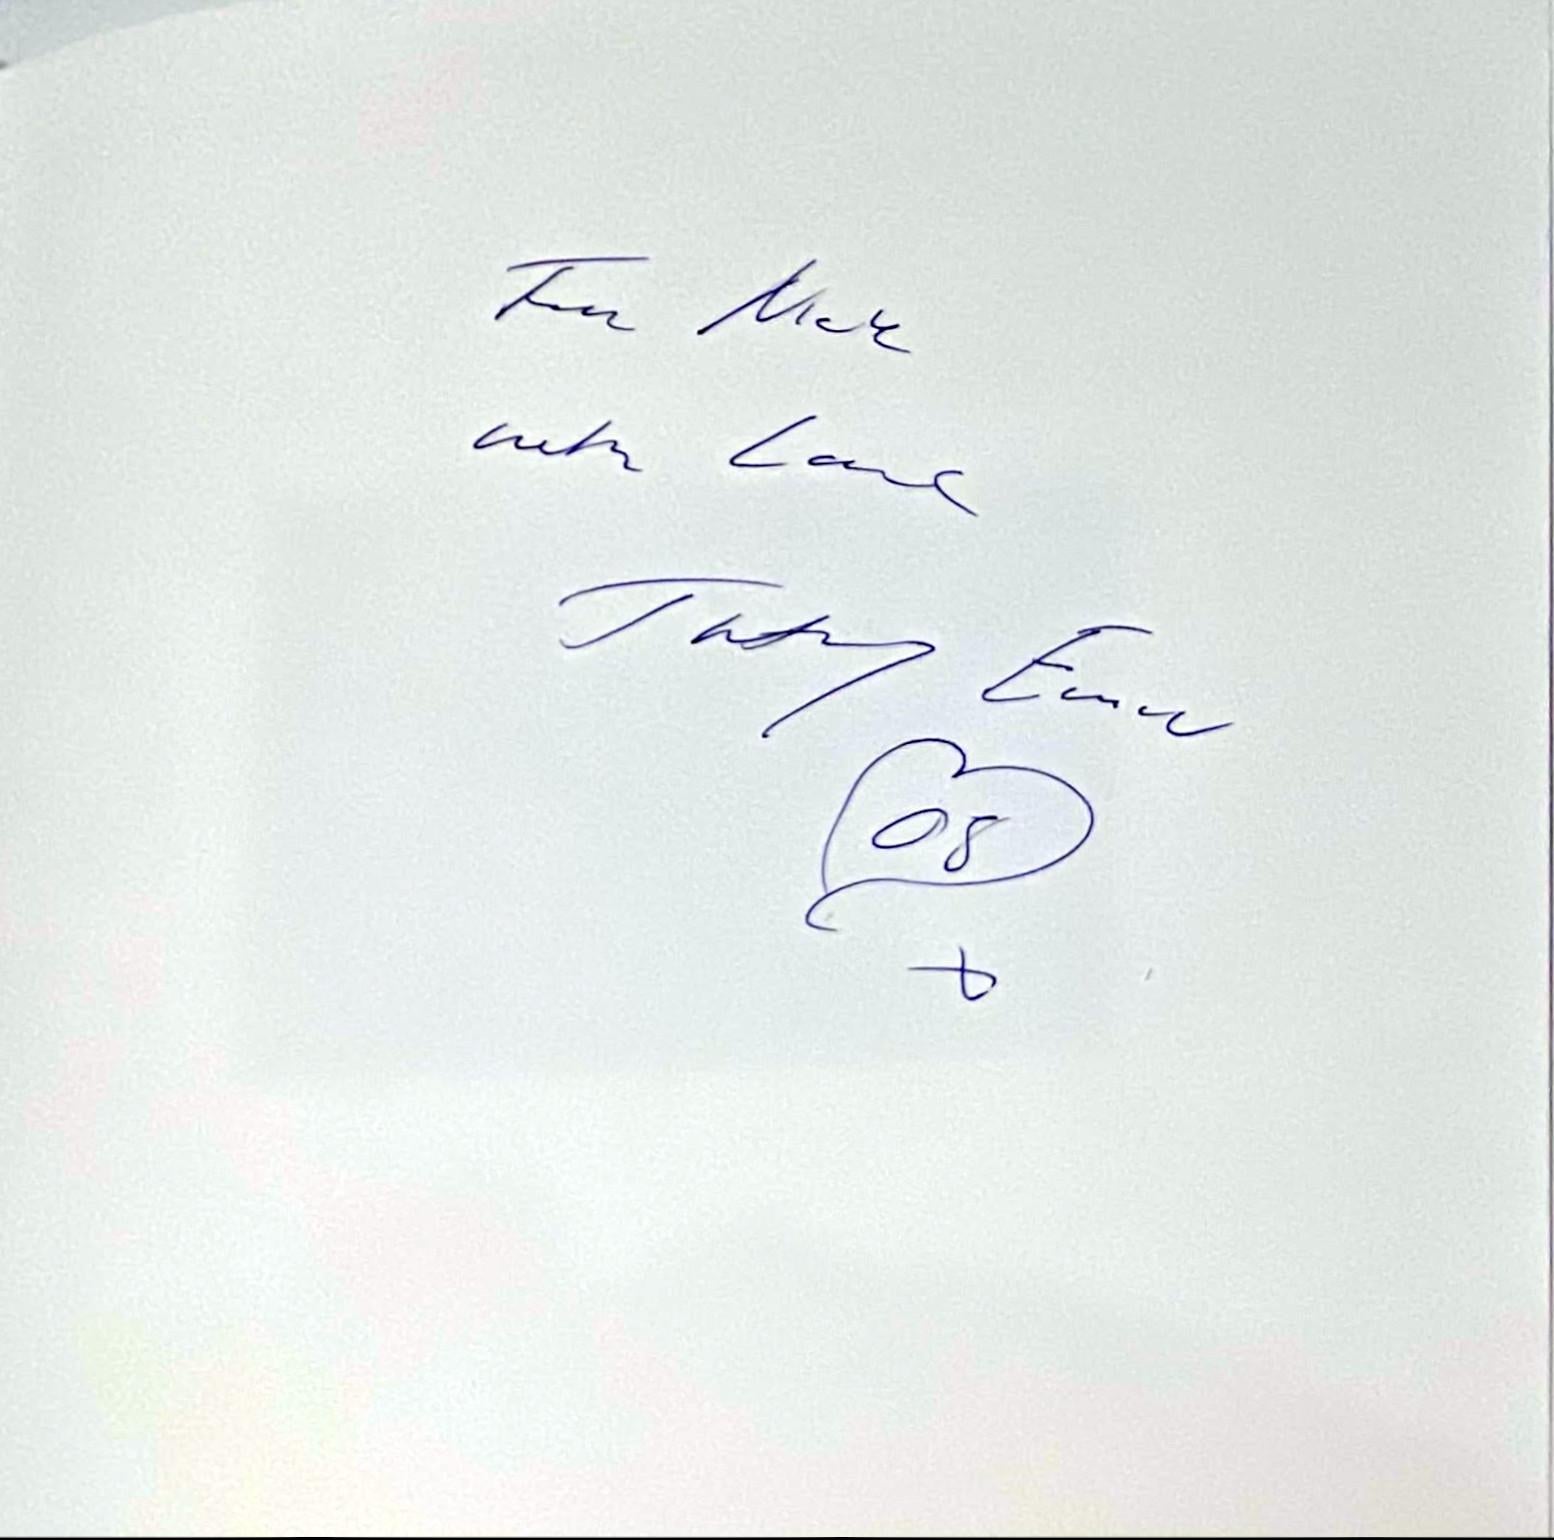 For Mark
with Love
Tracey Emin
08
x